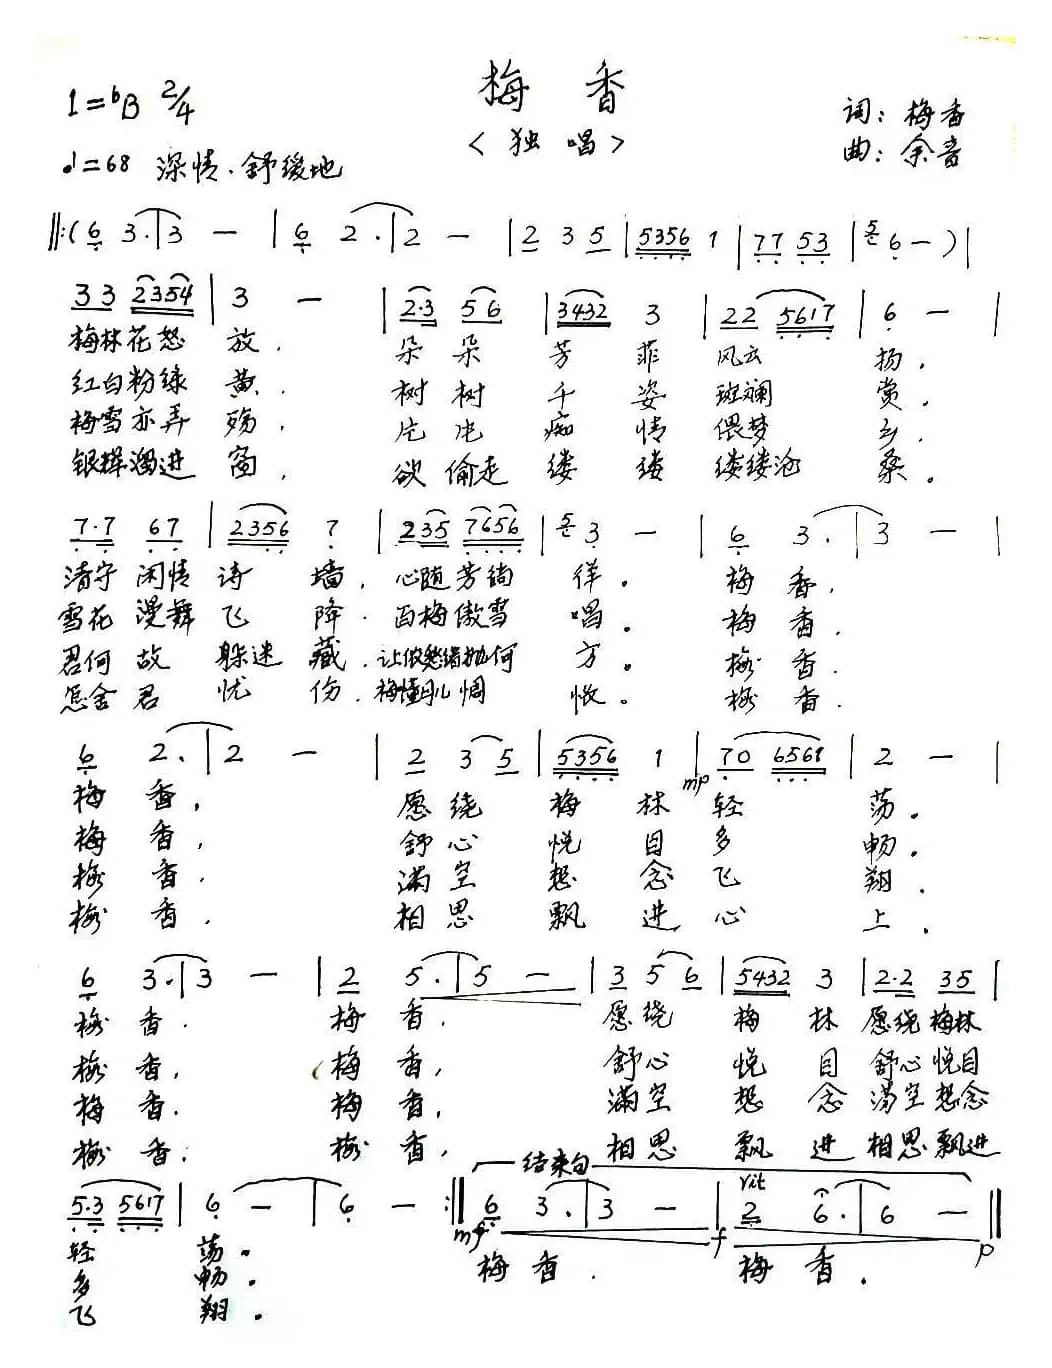 梅 香
1=♭B 2/4
<独 唱>
词：梅香
曲：余音
♩=68 深情.舒缓地
‖:(6 3.|3 — |6 2.|2 — |2 3 5|5356 1|77 53|5 6—)|
33 2354|3 — |2·3 56|3432 3|22 5617|6 — |
梅林花怒 放， 朵 朵 芳 菲 风云 扬，
红白粉绿 黄. 树 树 千 姿 斑斓 赏.
梅雪亦弄 殇， 片 片 痴 情 偎梦 乡.
银辉溜进 窗， 欲 偷走 缕 缕 缕缕沧 桑。
7·7 67|2356 7|235 7656|5 3 — |6 3.|3 — |
清守 闲情 诗 墙，心随芳徜 徉。 梅 香，
雪花 漫舞 飞 降.百梅傲雪 唱。 梅 香.
君何 故 躲迷 藏.让俶愁绪抛何 方。 梅 香.
怎舍 君 忧 伤.梅懂月儿 惆 怅。 梅 香.
6 2.|2 — |2 3 5|5356 1|mp 70 6561|2 — |
梅 香， 愿 绕 梅 林 轻 荡。
梅 香， 舒 心 悦 目 多 畅。
梅 香. 满 空 想 念 飞 翔.
梅 香. 相 思 飘 进 心 上.
6 3.|3 — |2 5.|5 — |3 5 6|5432 3|2·2 35|
梅 香. 梅 香. 愿绕 梅 林 愿绕梅林
梅 香， 梅 香， 舒心 悦 目 舒心悦目
梅 香. 梅 香， 满空 想 念 满空想念
梅 香； 梅 香， 相思 飘 进 相思飘进
结束句
rit
5·3 5617|6 — |6 — :‖6 3.|3 — |2 6.|6 — ‖
mf f p
轻 荡。 梅 香. 梅 香.
多 畅.
飞 翔。